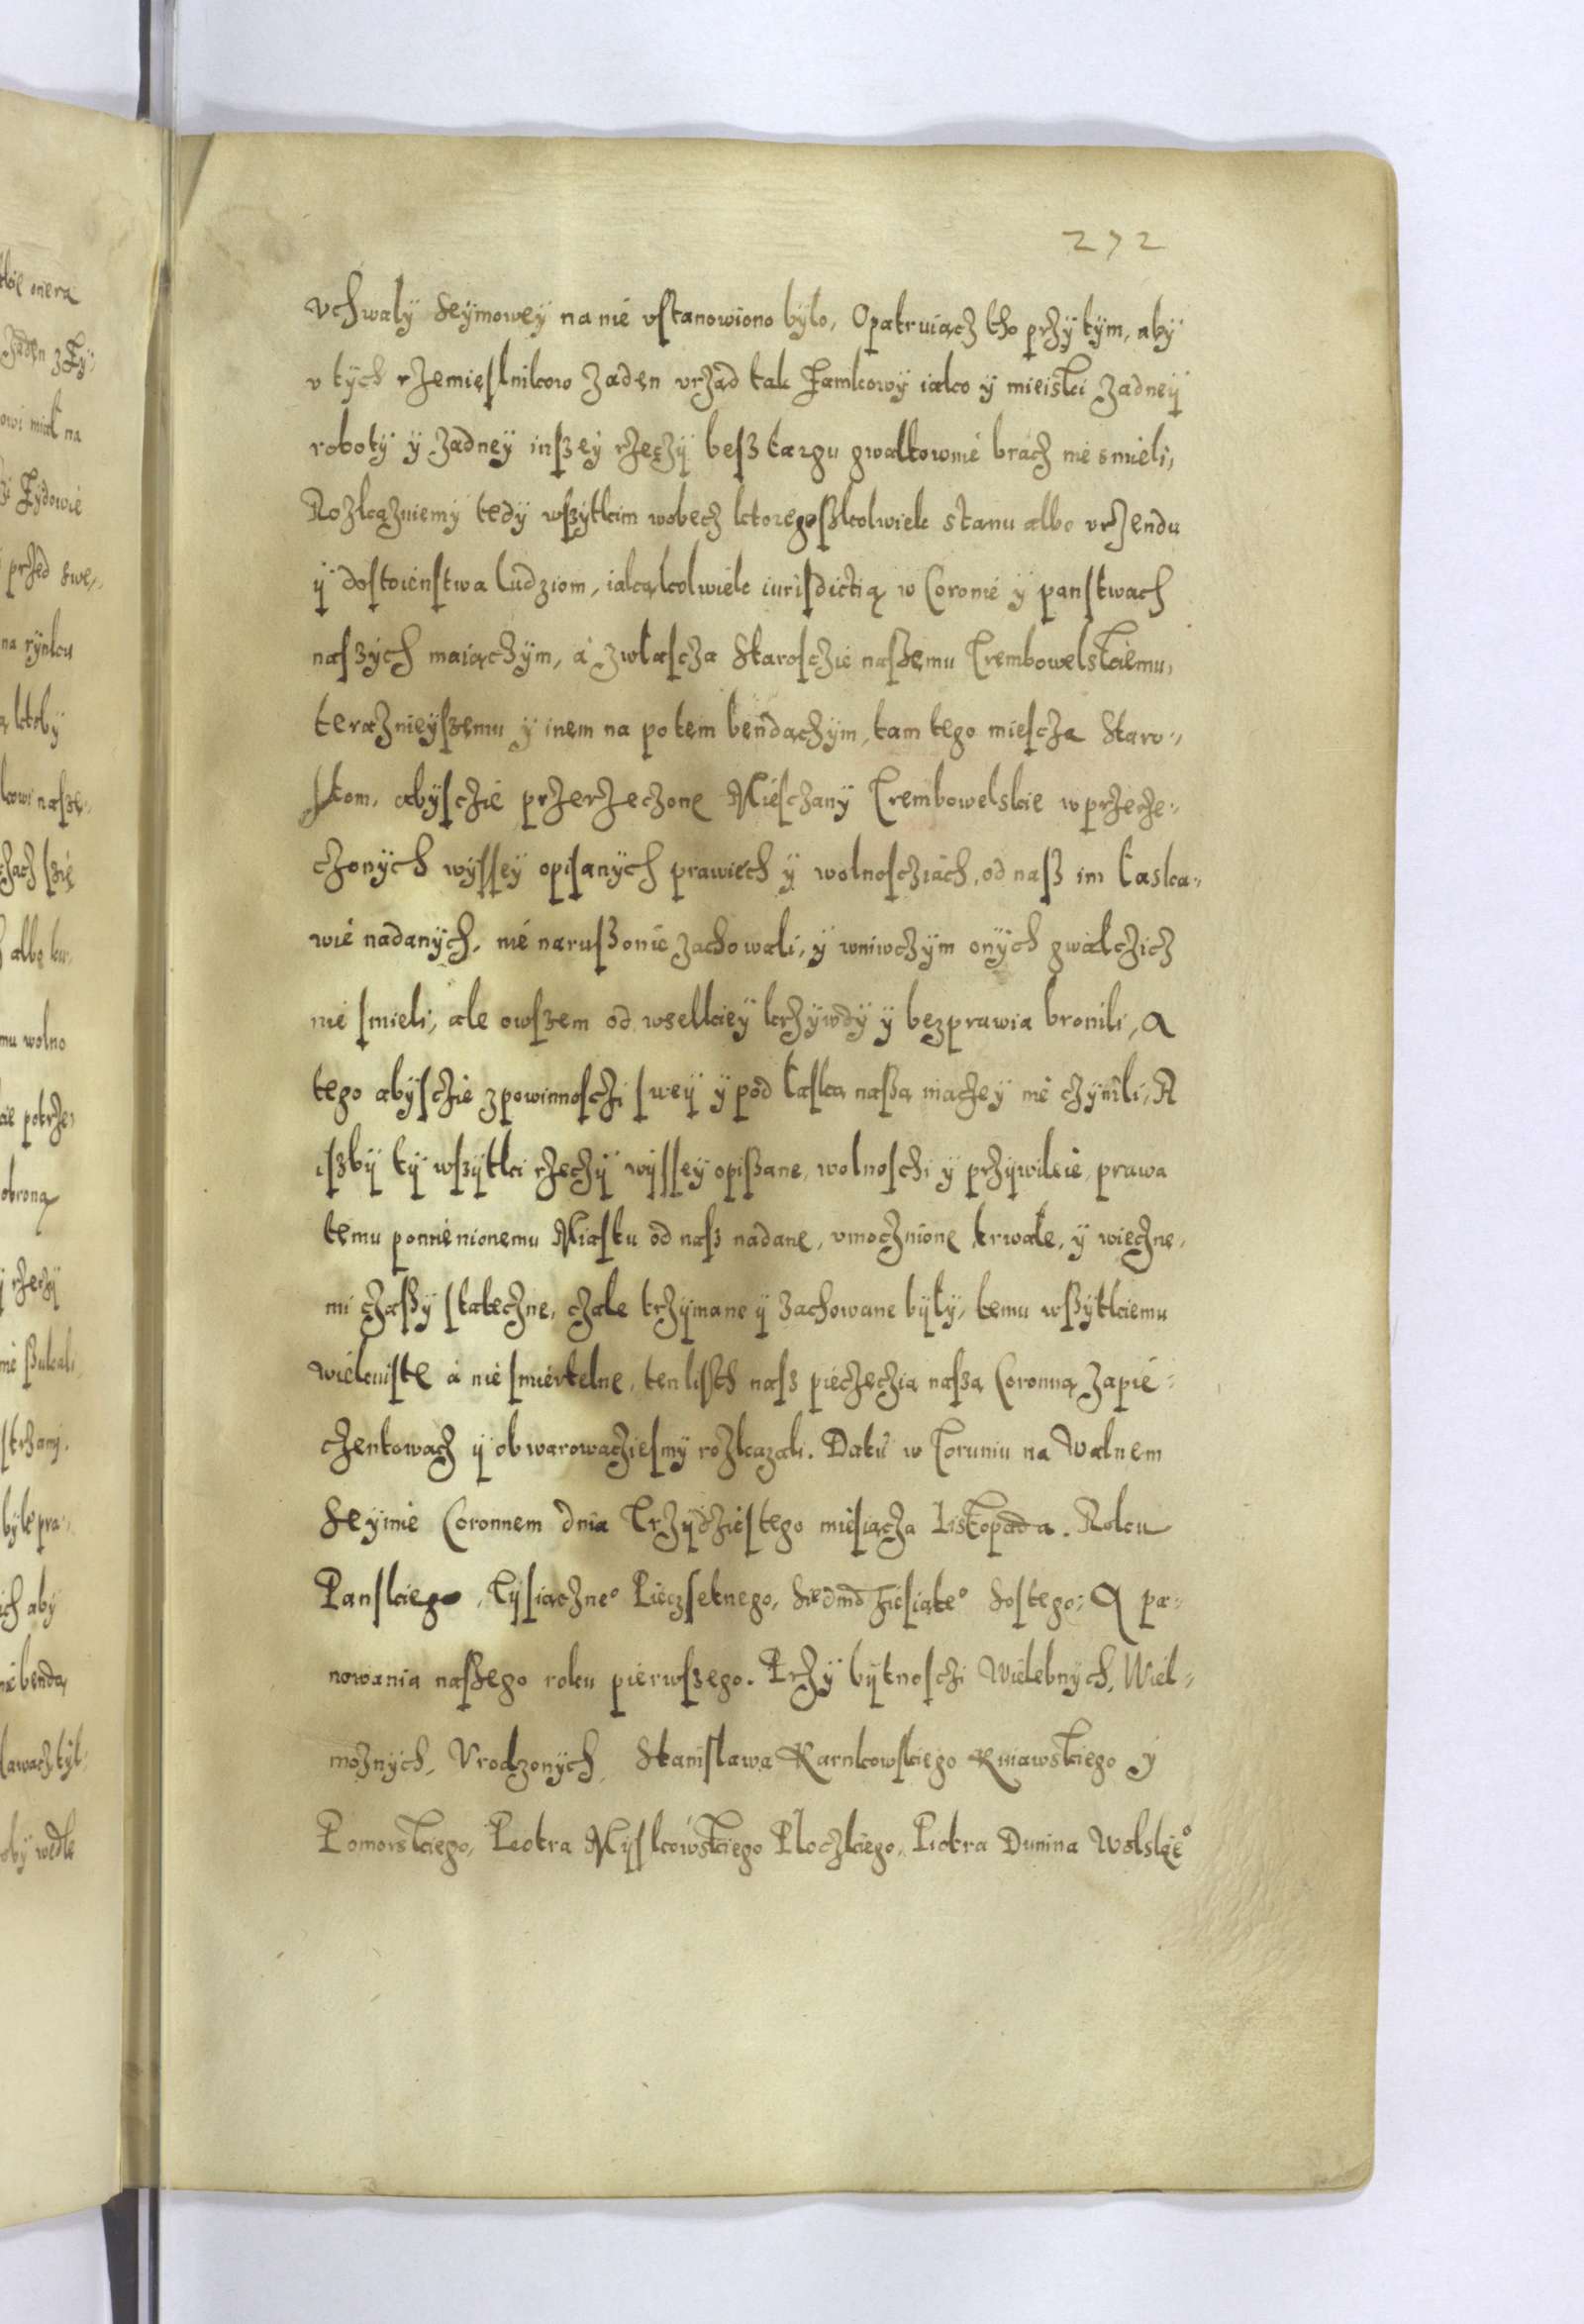 272
vchwały Seymowey na nié vstanowiono było, Opatruiącz tho przÿ tÿm, abÿ
v tÿch rzemięslnikow zadęn vrząd tak Zamkowÿ iako ÿ mieiski zadneÿ
robotÿ ÿ zadneÿ inszeÿ rzęczÿ besz targu gwałtownié bracz nié smieli,
Rozkazuiemÿ tedÿ wszÿtkim wobecz ktoregoszkolwiek stanu albo vrzendu
ÿ dostoienstwa ludziom, iakąkolwiek iurisdictią w Coronié ÿ panstwach
naszÿch maiączÿm, á zwłascza Starosczié naszemu Trembowelskiemu,
teraznieÿszemu ÿ inem na potem bendączÿm, tam tego miescza Staro-
stom, abÿsczié przerzeczone Miesczanÿ Trembowelskie w przecze-
czonÿch wÿsseÿ opisanÿch prawiech ÿ wolnosciach, od nasz im łaska-
wié nadanÿch, nié naruszonie zachowali, ÿ wniwczÿm onÿch gwałczicz
nié smieli, ale owszem od wselkieÿ krzÿwdÿ ÿ bezprawia bronili, A
tego abÿsczié z powinnosczi sweÿ ÿ pod łaską naszą inaczeÿ nié czÿnili, A
iszbÿ tÿ wszÿtki rzeczÿ wÿsseÿ opiszane, wolnosczi ÿ przÿwileié, prawa
temu pomienionemu Miastu od nasz nadane, vmocznione, trwałe, ÿ wieczne-
mi czaszÿ stateczne, czale trzÿmane ÿ zachowane bÿłÿ, temu wszÿtkiemu
wiekuiste á nié smiertelne, ten listh nasz pieczęczią naszą Coronną zapie-
czentowacz ÿ obwarowacziesmÿ rozkazali. Datū w Toruniu na Walnem
Seÿmié Coronnem dnia Trzÿdziestego miesiącza Listopada. Roku
Panskiego, Tÿsiączneº Piéczsetnego, Siedmdziesiąteº Sostego; A pa-
nowania naszego roku pierwszego. Przÿ bÿtnosczi Wielebnÿch, Wiel-
moznÿch, Vrodzonÿch, Stanisława Karnkowskiego Kuiawskiego ÿ
Pomorskiego, Piotra Mÿskowskiego Płoczkiego, Piotra Dunina Wolskieº